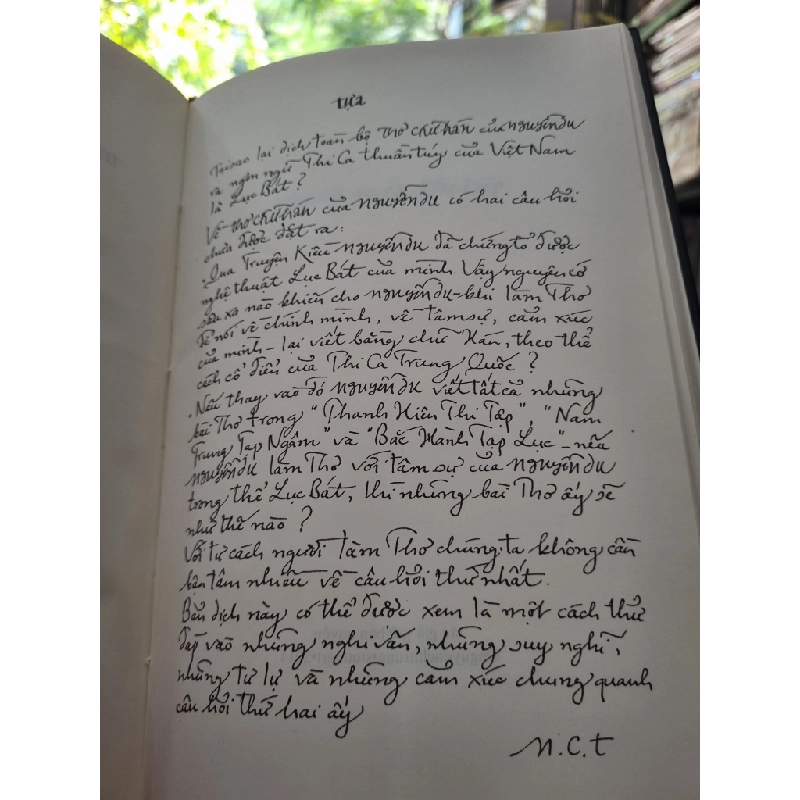 TỰA
Tại sao lại dịch toàn bộ Thơ chữ hán của NGUYỄN DU
ra ngôn ngữ Thi Ca thuần túy của Việt Nam
là Lục Bát?
Về thơ chữ hán của NGUYỄN DU có hai câu hỏi
chưa được đặt ra:
. Qua Truyện Kiều NGUYỄN DU đã chứng tỏ được
nghệ thuật Lục Bát của mình Vậy nguyên cớ
sâu xa nào khiến cho NGUYỄN DU - khi làm Thơ
để nói về chính mình, về tâm sự, cảm xúc
của mình - lại viết bằng chữ Hán, theo thể
cách cổ điển của Thi Ca Trung Quốc?
. Nếu thay vào đó NGUYỄN DU viết tất cả những
bài Thơ trong "Thanh Hiên Thi Tập", "Nam
Trung Tạp Ngâm" và "Bắc Hành Tạp Lục" - nếu
NGUYỄN DU làm Thơ với tâm sự của NGUYỄN DU
trong thể Lục Bát, thì những bài Thơ ấy sẽ
như thế nào?
Với tư cách người làm Thơ chúng ta không cần
bận tâm nhiều về câu hỏi thứ nhất.
Bản dịch này có thể được xem là một cách thử
đáp vào những nghi vấn, những suy nghĩ,
những tư lự và những cảm xúc chung quanh
câu hỏi thứ hai ấy
N.C.T